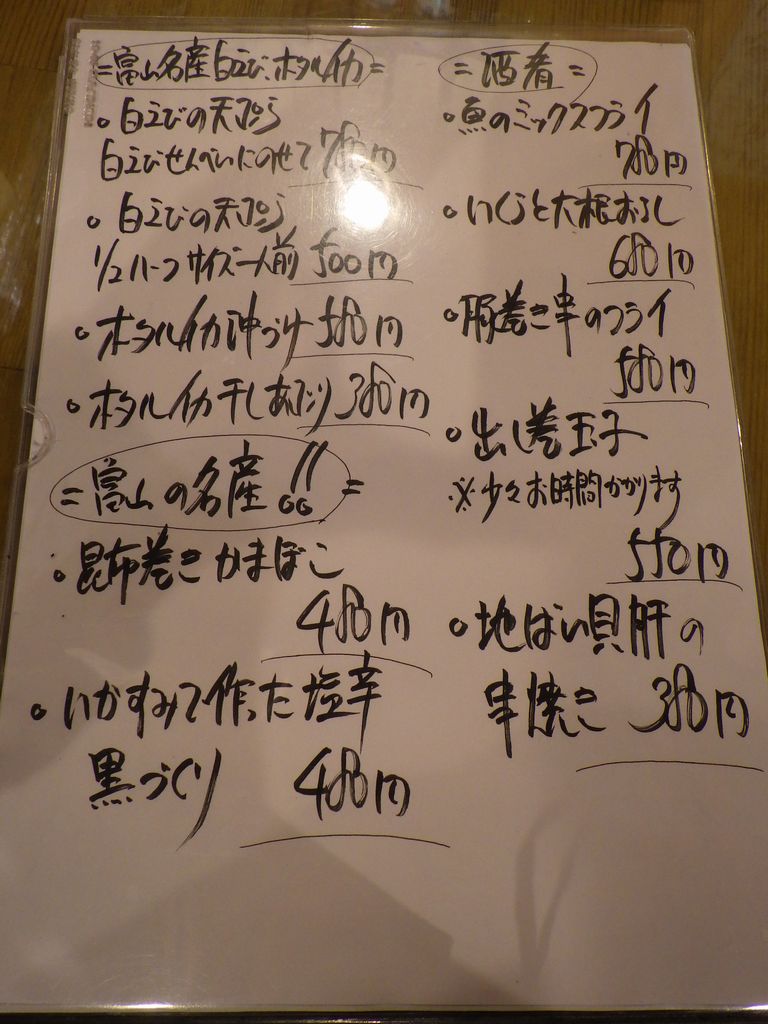 =富山名産白えび、ホタルイカ=
・白えびの天ぷら
白えびせんべいにのせて 780円
・白えびの天ぷら
1/2ハーフサイズ一人前 500円
・ホタルイカ沖づけ 580円
・ホタルイカ干しあぶり 380円
=富山の名産!!=
・昆布巻きかまぼこ
480円
・いかすみで作った塩辛
黒づくり 480円
=酒肴=
・魚のミックスフライ
780円
・いくらと大根おろし
680円
・豚巻き串のフライ
580円
・出し巻玉子
※少々お時間かかります
550円
・地ばい貝肝の
串焼き 380円